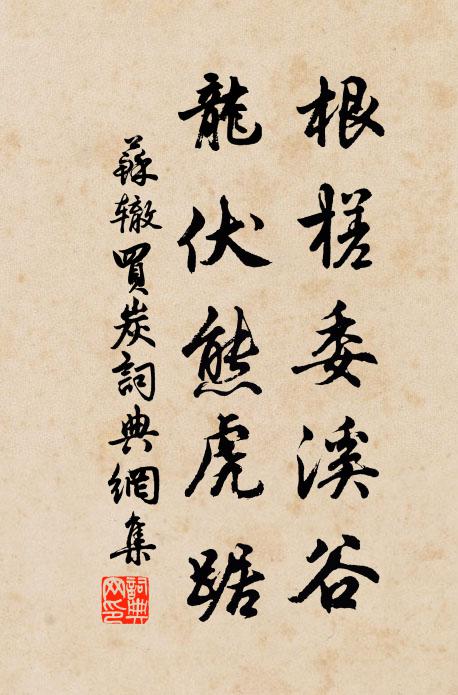 根槎委溪谷
龍伏熊虎踞
蘇辙買炭詞典網集
詞典
网印